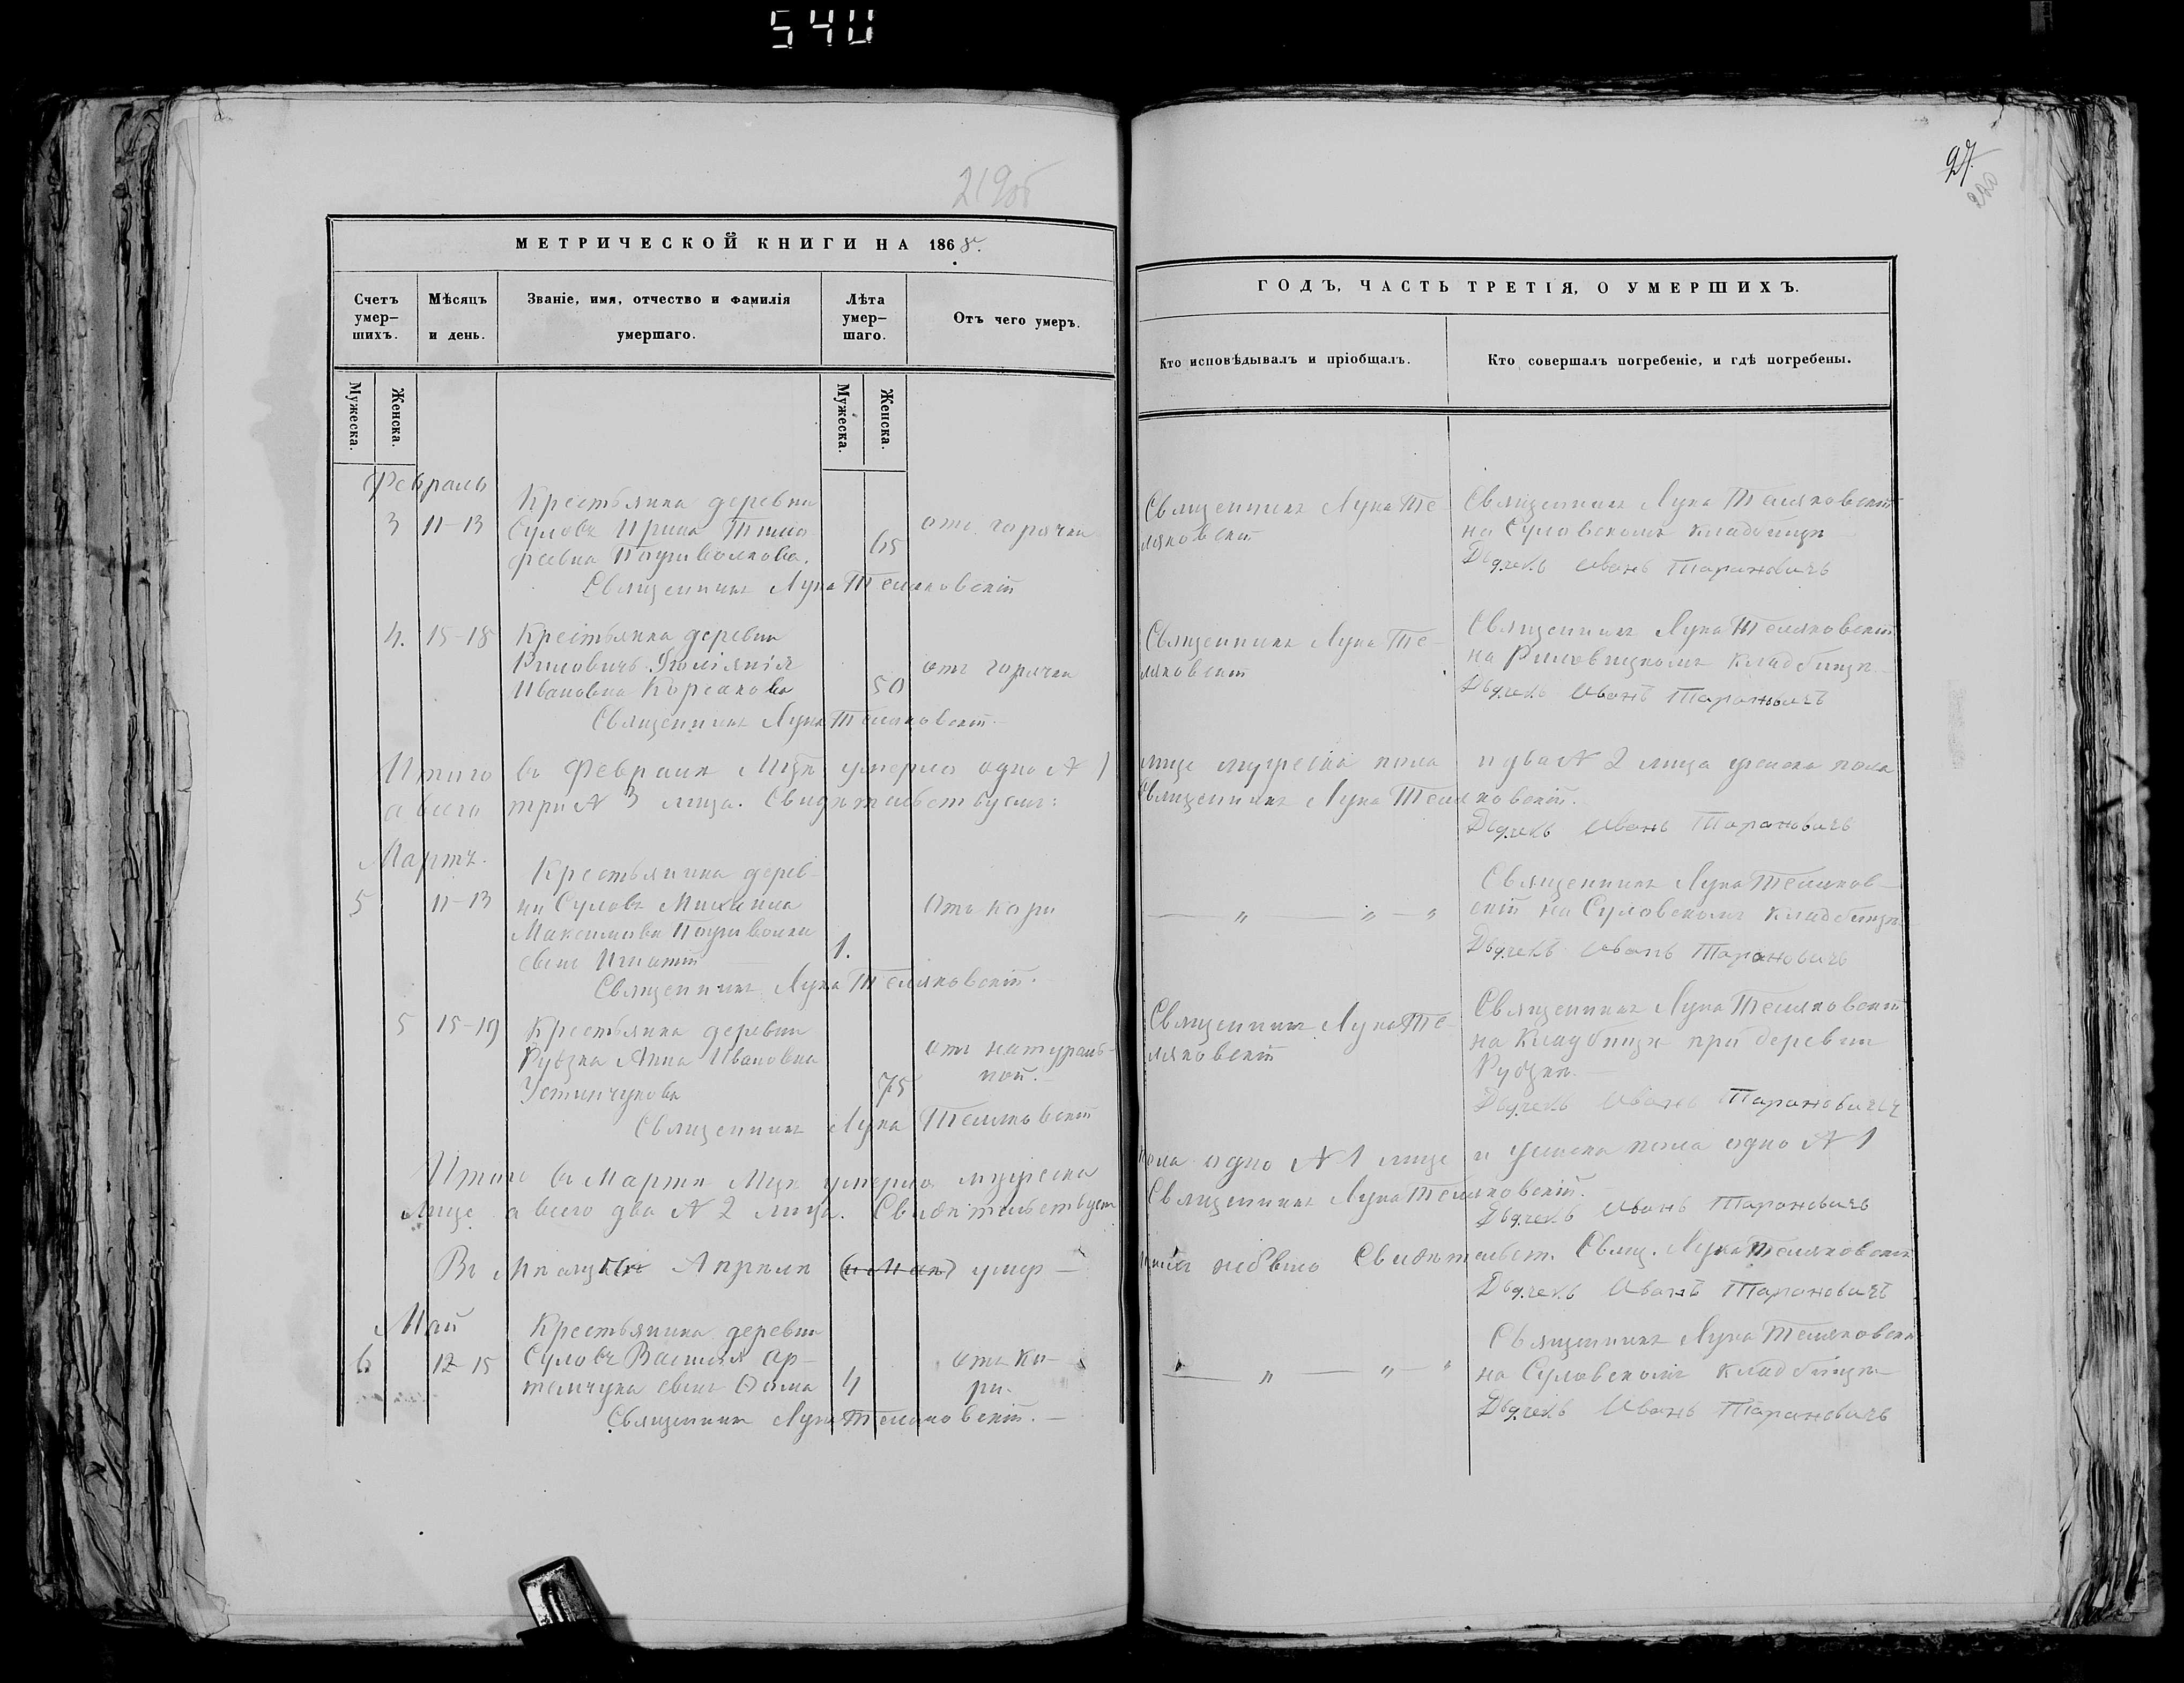 540
219об
97.
220
МЕТРИЧЕСКОЙ КНИГИ НА 1868.
Счетъ умер–шихъ.
Мѣсяцъ и день.
Званіе, имя, отчество и фамилія умершаго.
Лѣта умер–шаго.
Отъ чего умеръ.
Мужеска.
Женска.
Мужеска.
Женска.
Февраль
3 11-13
Крестьянка деревни
Суловъ Ирина Тимо
феевна
65
отъ горячки
Священникъ Лука Теляковскій
4. 15-18
Крестьянка деревни
Ивановна Корсакова
50
отъ горячки
Священникъ Лука Теляковскій
Итого въ Февралѣ Мцѣ умерло одно № 1
а всего три № 3 лица. Свидѣтельствуемъ:
Мартъ.
5 11-13
Крестьянина дерев-
ни Суловъ Михаила
Максимова
сынъ Игнатій
1.
Отъ кори
Священникъ Лука Теляковскій.
5 15-19
Крестьянка деревни
Рудзка Анна Ивановна
75
отъ натураль-
ной.
Священникъ Лука Теляковскій
Итого въ Мартѣ Мцѣ умерло мужеска
лице а всего два № 2 лица. Свидѣтельствуемъ
Въ Мѣсяцѣ Апрѣлѣ (и Маѣ) умер-
Май
6 12-15
Крестьянина деревни
Суловъ Василія Ар-
темчука сынъ Ѳома
4
отъ ко-
ри.
Священникъ Лука Теляковскій.
ГОДЪ, ЧАСТЬ ТРЕТІЯ, О УМЕРШИХЪ.
Кто исповѣдывалъ и пріобщалъ.
Кто совершалъ погребеніе, и гдѣ погребены.
Священникъ Лука Те-
ляковскій
Священникъ Лука Теляковскій
на Суловскомъ кладбищѣ
Дьячекъ Иванъ Тарановичъ
Священникъ Лука Те-
ляковскій
Священникъ Лука Теляковскій
на кладбищѣ
Дьячекъ Иванъ Тарановичъ
лице мужеска пола и два № 2 лица женска пола
Священникъ Лука Теляковскій.
Дьячекъ Иванъ Тарановичъ
Священникъ Лука Теляков-
скій на Суловскомъ кладбищѣ
Дьячекъ Иванъ Тарановичъ
Священникъ Лука Те-
ляковскій
Священникъ Лука Теляковскій
на Кладбищѣ при деревни
Рудзки
Дьячекъ Иванъ Тарановичъ
пола одно № 1 лице и женска пола одно № 1
Священникъ Лука Теляковскій.
Дьячекъ Иванъ Тарановичъ
шихъ небыло Свидѣтельст. Свящ. Лука Теляковскій
Дьячекъ Иванъ Тарановичъ
Священникъ Лука Теляковскій
на Суловскомъ кладбищѣ
Дьячекъ Иванъ Тарановичъ